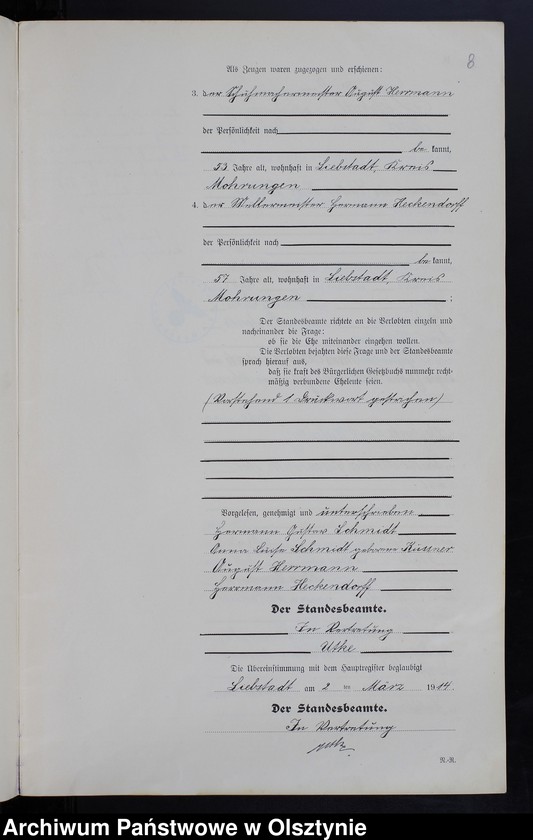 8
Als Zeugen waren zugezogen und erschienen:
3. der Schuhmachermeister August Herrmann
der Persönlichkeit nach
be kannt,
53 Jahre alt, wohnhaft in Liebstadt, Kreis
Mohrungen
4. der Hermann Heckendorff
der Persönlichkeit nach
be kannt,
57 Jahre alt, wohnhaft in Liebstadt, Kreis
Mohrungen ;
Der Standesbeamte richtete an die Verlobten einzeln und
nacheinander die Frage:
ob sie die Ehe miteinander eingehen wollen.
Die Verlobten bejahten diese Frage und der Standesbeamte
sprach hierauf aus,
daß sie kraft des Bürgerlichen Gesetzbuchs nunmehr recht-
mäßig verbundene Eheleute seien.
(Vorstehend 1 Druckwort gestrichen)
Vorgelesen, genehmigt und unterschrieben
Hermann Gustav Schmidt
Anna Luise Schmidt geborene
August Herrmann
Herrmann Heckendorff
Der Standesbeamte.
In Vertretung
Utke
Die Übereinstimmung mit dem Hauptregister beglaubigt
Liebstadt am 2 ten März 1914.
Der Standesbeamte.
In Vertretung
Utke.
R.-R.
Archiwum Państwowe w Olsztynie